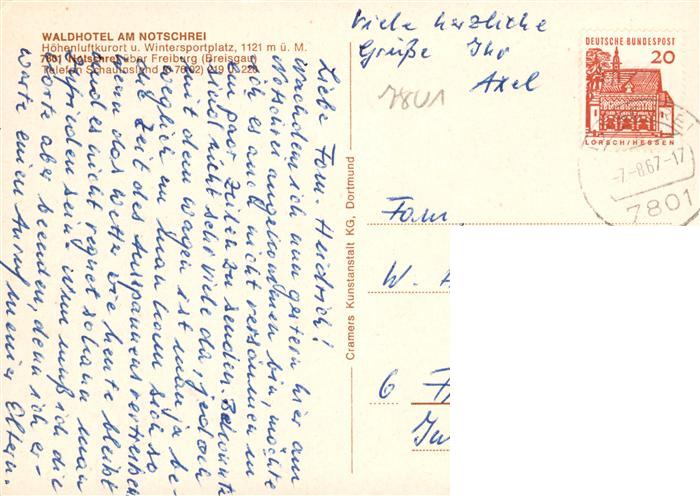 WALDHOTEL AM NOTSCHREI
Höhenluftkurort u. Wintersportplatz, 1121 m ü. M.
7801 Notschrei über Freiburg (Breisgau)
Telefon Schauinsland (0 76 02) 219 u. 220
Liebe Fam. Heidrich!
Nachdem ich nun gestern hier am
Notschrei angekommen bin, möchte
ich es auch nicht versäumen Ihnen
ein paar Zeilen zu senden. Bekannte
sind nicht sehr viele da, jedoch
mit dem Wagen ist man ja be-
weglich um man kann sich so
die Zeit des Ausspannens vertreiben.
Wenn das Wetter wie heute bleibt
und es nicht regnet so kann man
zufrieden sein. Nun muß ich die
Karte aber beenden, denn ich er-
warte einen Anruf meiner Eltern.
Viele herzliche
Grüße Ihr
Axel
7801
Cramers Kunstanstalt KG, Dortmund
DEUTSCHE BUNDESPOST
20
LORSCH/HESSEN
-7.-8.67-17
7801
Fam.
W.
6